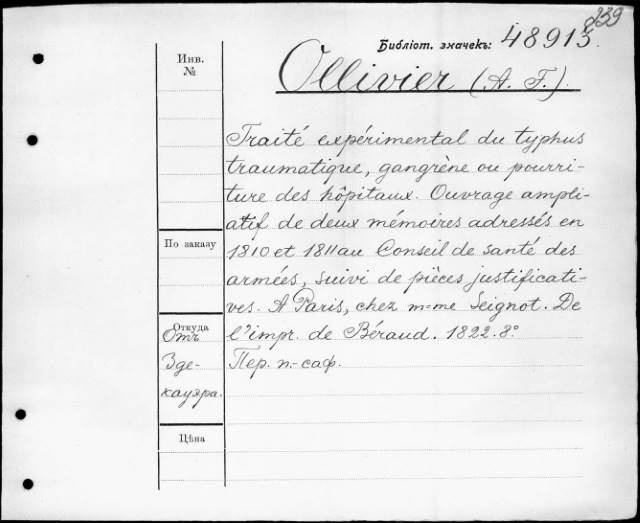 239
Библіот. значекъ: 48915.
Инв.
№
Ollivier (A. F.).
Traité expérimental du typhus
traumatique, gangrène ou pourri-
ture des hôpitaux. Ouvrage ampli-
atif de deux mémoires adressés en
По заказу
1810 et 1811 au Conseil de santé des
armées, suivi de pièces justificati-
ves. A Paris, chez m-me Seignot. De
Откуда
Отъ
l'impr. de Béraud. 1822. 8°
Зде-
Пер. п.-саф.
кауэра.
Цѣна